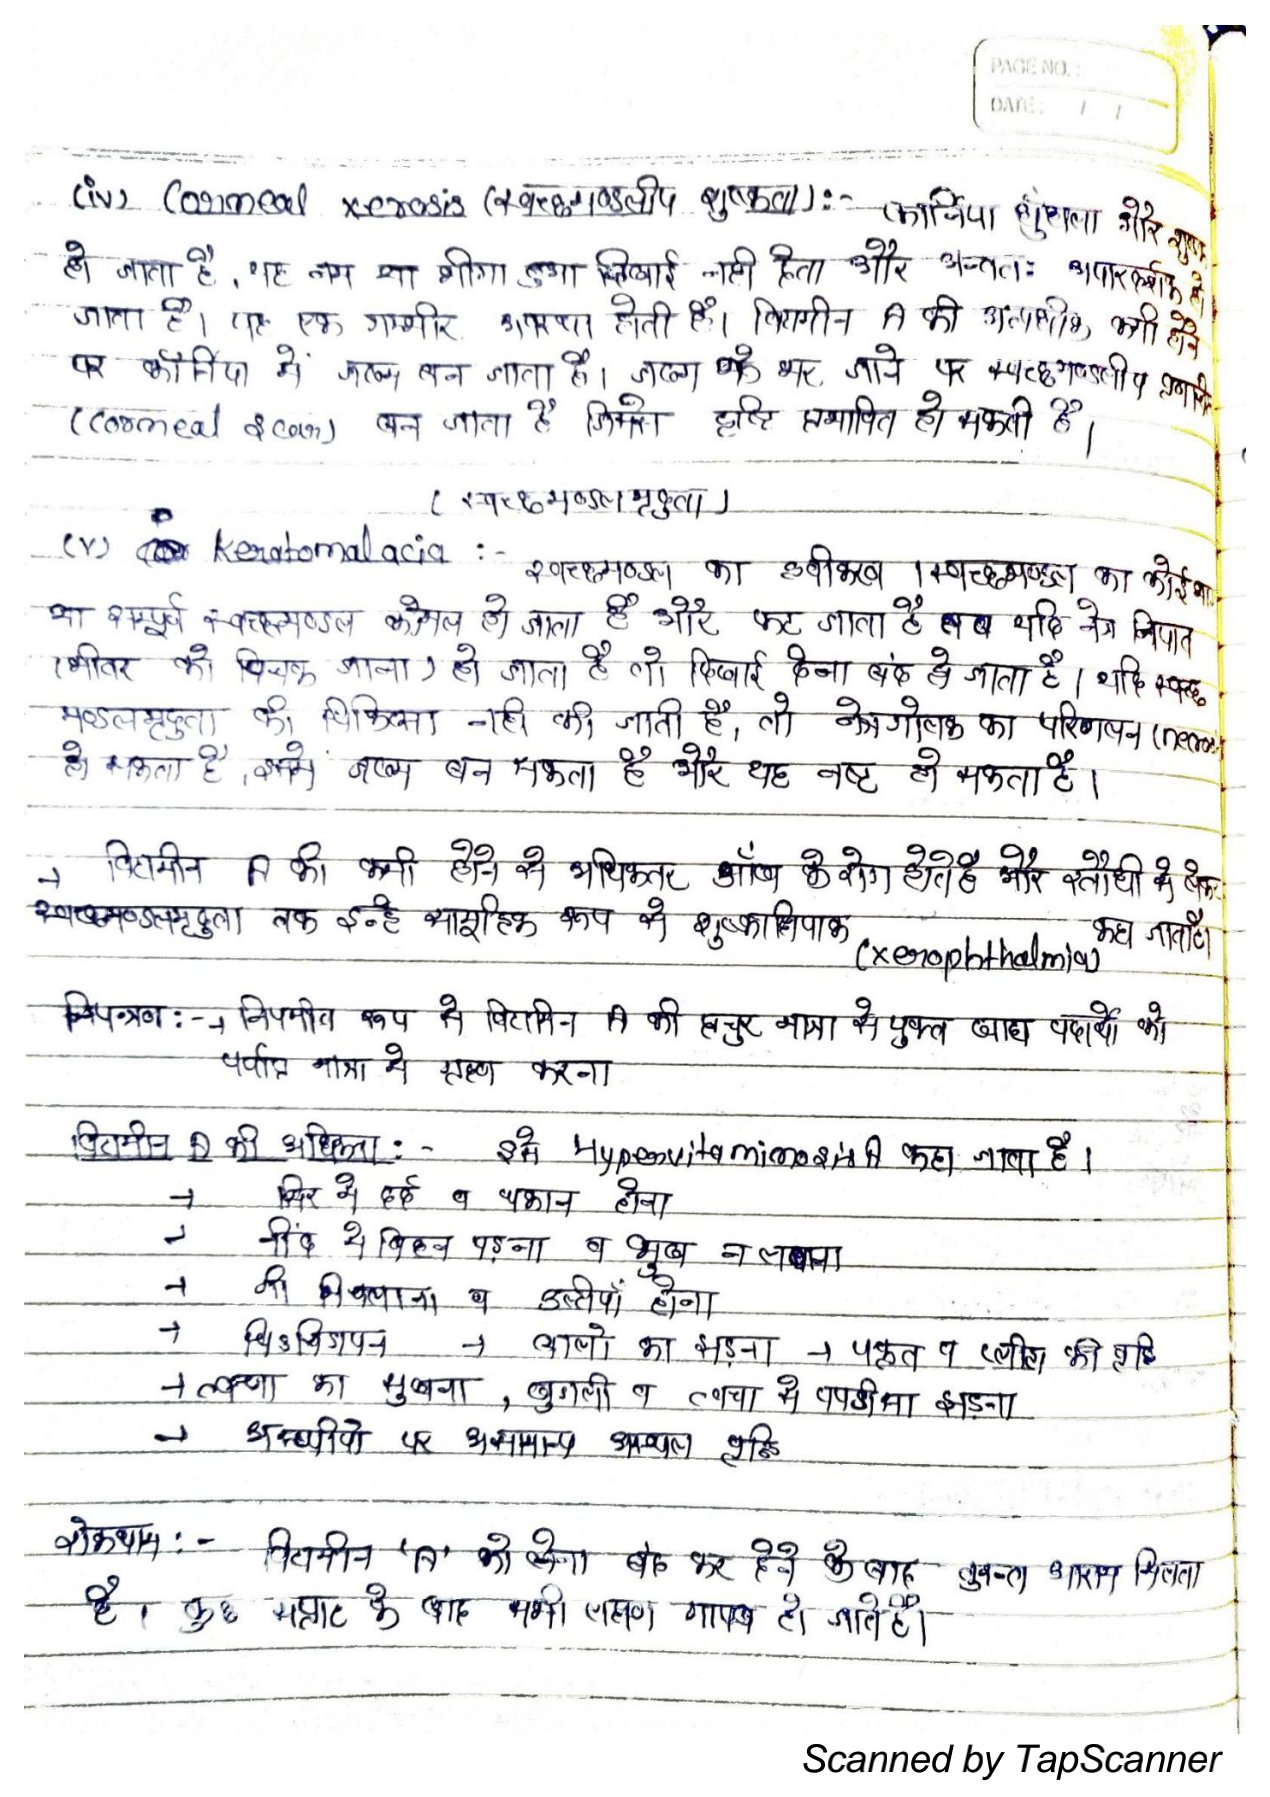 PAGE NO.:
DATE: / /
(iv) Corneal xerosis (स्वच्छमण्डलीय शुष्कता) :- कार्निया धुंधला और शुष्क
हो जाता है, यह नम या भीगा हुआ दिखाई नही देता और अन्ततः अपारदर्शक हो
जाता है। यह एक गम्भीर अवस्था होती है। विटामीन A की अत्यधिक कमी होने
पर कॉर्निया में जख्म बन जाता है। जख्म के भर जाने पर स्वच्छमण्डलीय
(Corneal scar) बन जाता है जिससे दृष्टि प्रभावित हो सकती है।
(स्वच्छमण्डलमृदुता)
(v) Keratomalacia :- स्वच्छमण्डल का द्रवीकरण। स्वच्छमण्डल का कोई भाग
या सम्पूर्ण स्वच्छमण्डल कोमल हो जाता है और फट जाता है तब यदि नेत्र निपात
(भीतर को पिचक जाना) हो जाता है तो दिखाई देना बंद हो जाता है। यदि स्वच्छ
मण्डलमृदुता की चिकित्सा नही की जाती है, तो नेत्रगोलक का परिगलन
हो सकता है, इसमें जख्म बन सकता है और यह नष्ट हो सकता है।
→ विटामीन A की कमी होने से अधिकतर आँख के रोग होते है और रतौंधी से लेकर
स्वच्छमण्डलमृदुता तक इन्हे सामूहिक रूप से शुष्काक्षिपाक (xerophthalmia) कहा जाता है।
नियन्त्रण :- → नियमीत रूप से विटामिन A की प्रचुर मात्रा से युक्त खाद्य पदार्थो को
पर्याप्त मात्रा मे ग्रहण करना
विटामीन A की अधिकता :- इसे Hypervitaminosis A कहा जाता है।
→ सिर मे दर्द व थकान होना
→ नींद मे विघ्न पड़ना व भुख न लगना
→ जी मिचलाना व उल्टीयाँ होना
→ चिडचिडापन → बालो का झड़ना → यकृत व प्लीहा की वृद्धि
→ त्वचा का सुखना, खुजली व त्वचा से पपडीया झड़ना
→ अस्थीयो पर असामान्य अस्थल वृद्धि
रोकथाम :- विटामीन 'A' को लेना बंद कर देने के बाद तुरन्त आराम मिलता
है। कुछ सप्ताह के बाद सभी लक्षण गायब हो जाते है।
Scanned by TapScanner